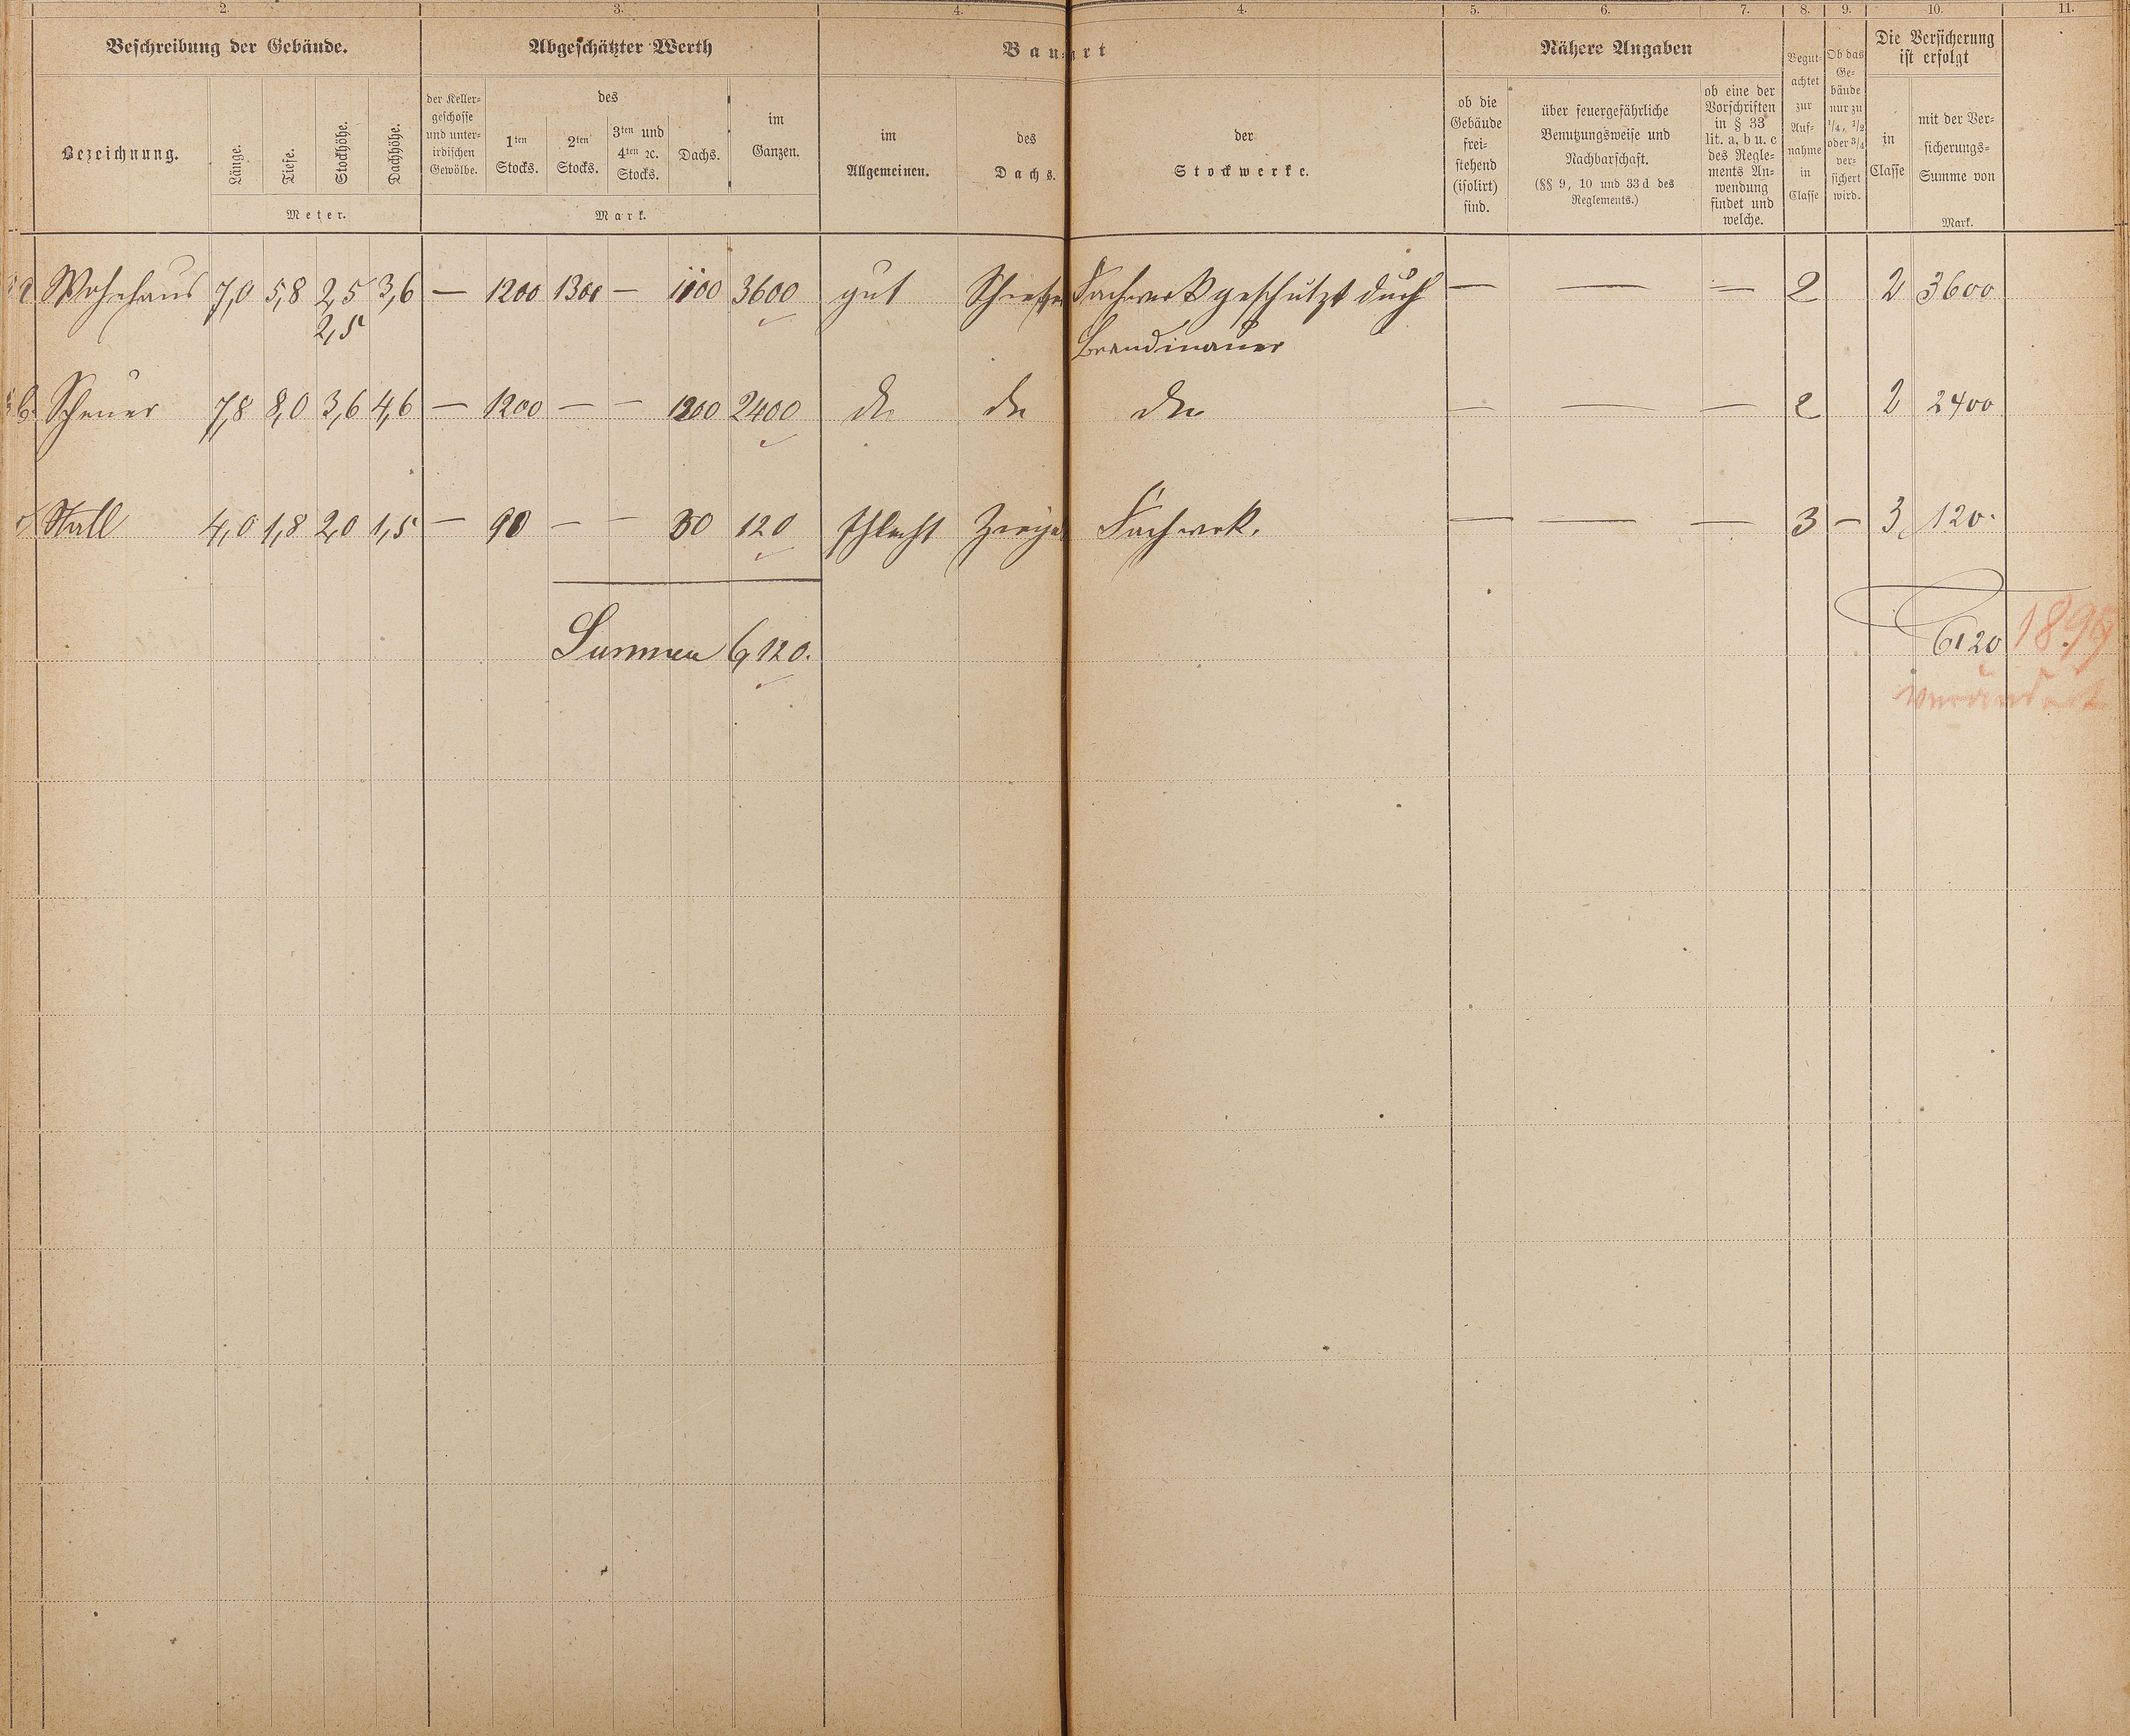 2. 3. 4. 4. 5. 6. 7. 8. 9. 10. 11.
Beschreibung der Gebäude. Abgeschätzter Werth Bauart Nähere Angaben
Begut-achtet zur Auf-nahme in Classe
Ob das Ge-bäude nur zu 1/4, 1/2 oder 3/4 ver-sichert wird.
Die Versicherung
ist erfolgt
Bezeichnung. Länge. Tiefe. Stockhöhe. Dachhöhe.
Meter.
der Keller-
geschosse
und unter-
irdischen
Gewölbe.
des
1ten
Stocks.
2ten
Stocks.
3ten und
4ten ꝛc.
Stocks.
Dachs.
im
Ganzen.
Mark.
im
Allgemeinen.
des
Dachs.
der
Stockwerke.
ob die
Gebäude
frei-
stehend
(isolirt)
sind.
über feuergefährliche
Benutzungsweise und
Nachbarschaft.
(§§ 9, 10 und 33 d des
Reglements.)
ob eine der
Vorschriften
in § 33
lit. a, b u. c
des Regle-
ments An-
wendung
findet und
welche.
in
Classe
mit der Ver-
sicherungs-
Summe von
Mark.
a Wohnhaus 7,0 5,8 2,5 3,6 — 1200 1300 — 1100 3600 gut Schiefer Fachwerk geschützt durch — — — 2 2 3600
2,5 Brandmauer
b. Scheuer 7,8 8,0 3,6 4,6 — 1200 — — 1200 2400 do do do — — — 2 2 2400
Stall 4,0 1,8 2,0 1,5 — 90 — — 30 120 schlecht Ziegel Fachwerk. — — — 3 — 3 120.
Summen 6,120. 6120
verändert